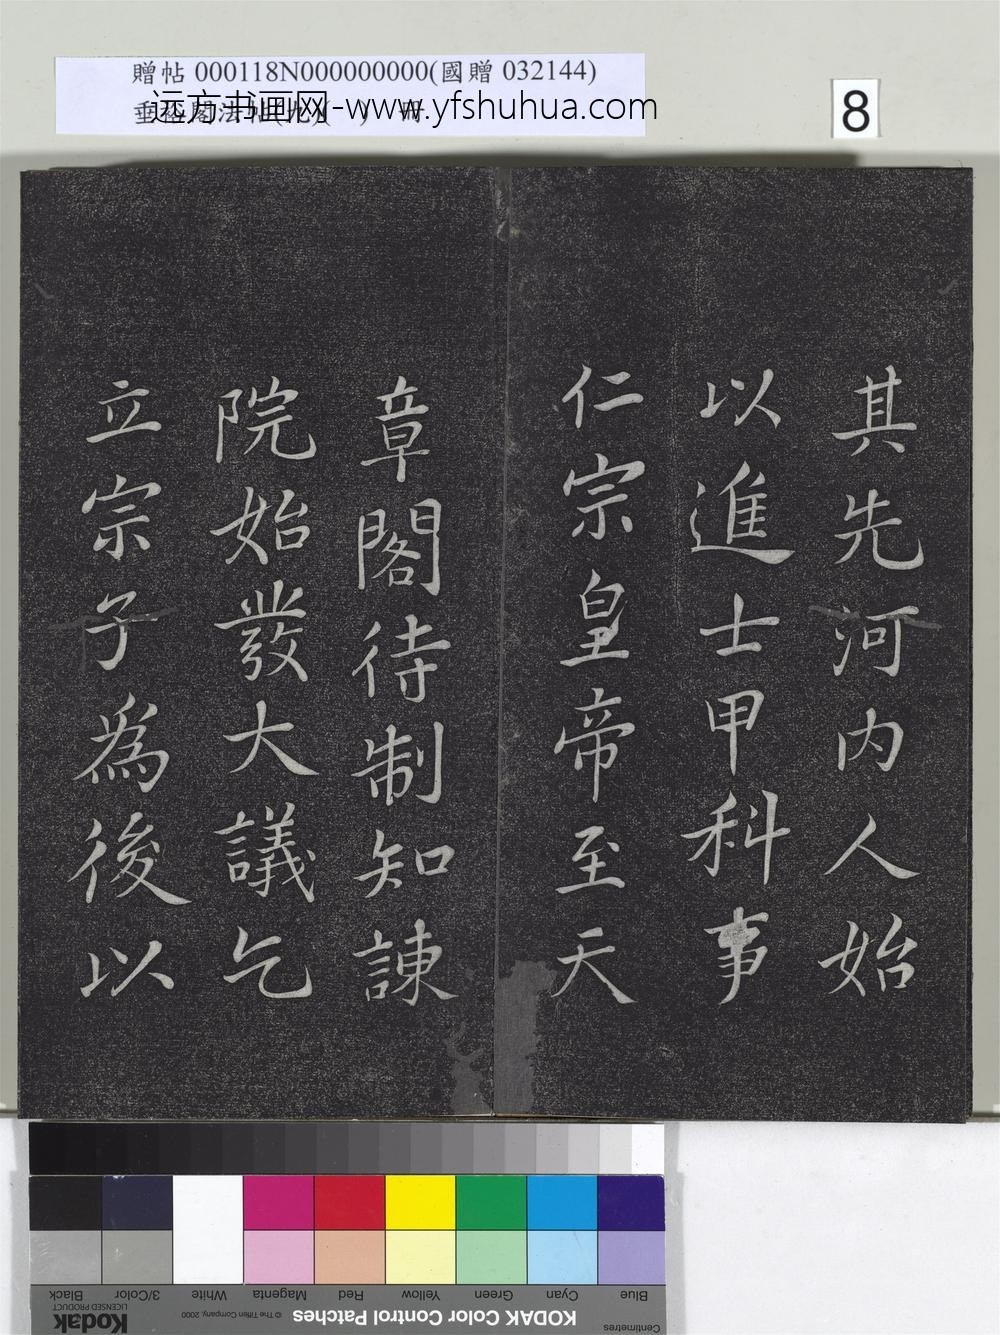 贈帖 000118N000000000(國贈 032144)
远方书画网-www.yfshuhua.com
8
其先河内人始
以進士甲科事
仁宗皇帝至天
章閣待制知諫
院始發大議乞
立宗子為後以
Blue
Cyan
Green
Yellow
Red
Magenta
White
3/Color
Black
Centimetres
KODAK Color Control Patches
© The Tiffen Company, 2000
Kodak
LICENSED PRODUCT